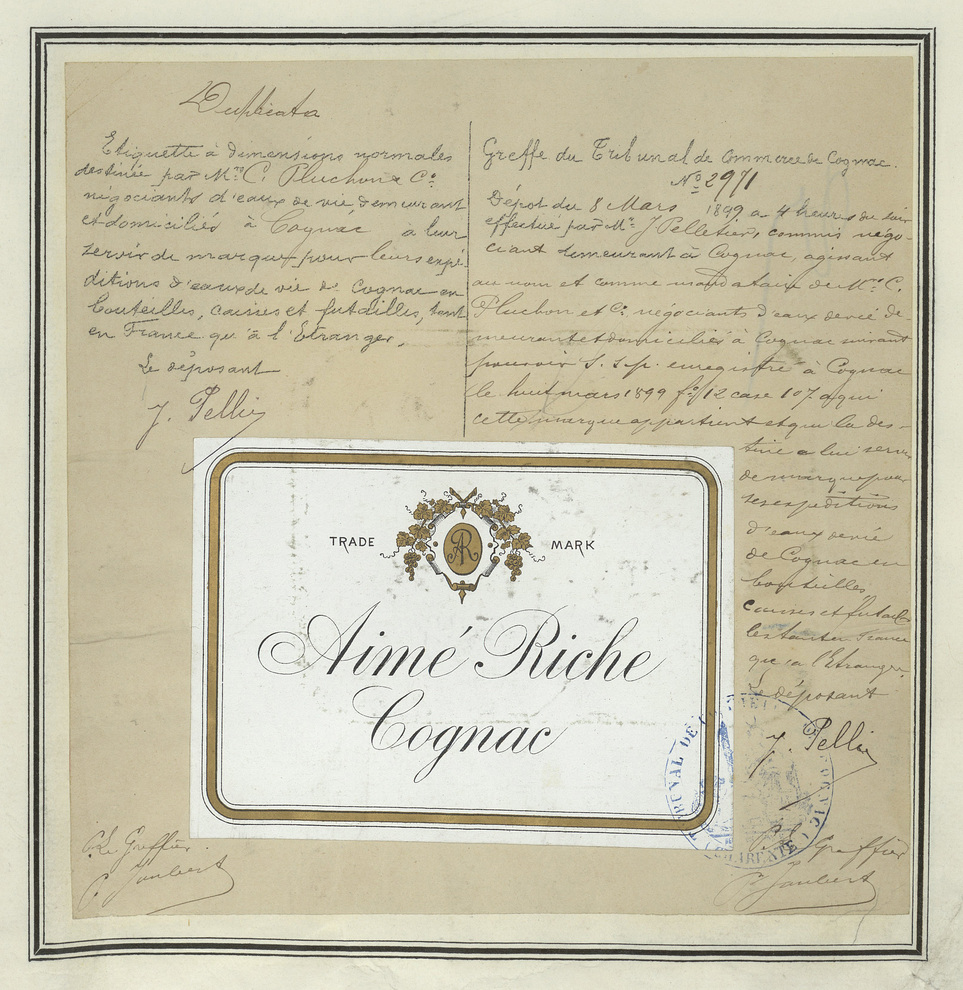 Duplicata
Etiquette à dimensions normales
destinée par Mrs C. Pluchon & Cº
négociants d'eaux de vie demeurant
et domiciliés à Cognac a leur
servir de marque pour leurs expé-
ditions d'eaux de vie de Cognac en
bouteilles, caisses et futailles, tant
en France qu'à l'Etranger.
Le déposant
J. Pelle
Greffe du Tribunal de Commerce de Cognac.
Nº 2971
Dépot du 8 Mars 1899 a 4 heures du soir
effectué par Mr J Pelletier, commis négo-
ciant demeurant à Cognac, agissant
au nom et comme mandataire de Mrs C.
Pluchon et Cº négociants d'eaux de vie de-
meurant et domiciliés à Cognac suivant
pouvoir s.s.p. enregistré à Cognac
le huit mars 1899 fº 12 case 107 a qui
cette marque appartient et qui la des-
tine a lui servir
de marque pour
ses expéditions
d'eaux de vie
de Cognac en
bouteilles
caisses et futail-
les tant en France
que a l'Etranger.
Le déposant
J. Pelle
TRADE MARK
AR
Aimé Riche
Cognac
TRIBUNAL DE COGNAC (CHARENTE)
Le Greffier
P. Joubert
Le Greffier
P. Joubert